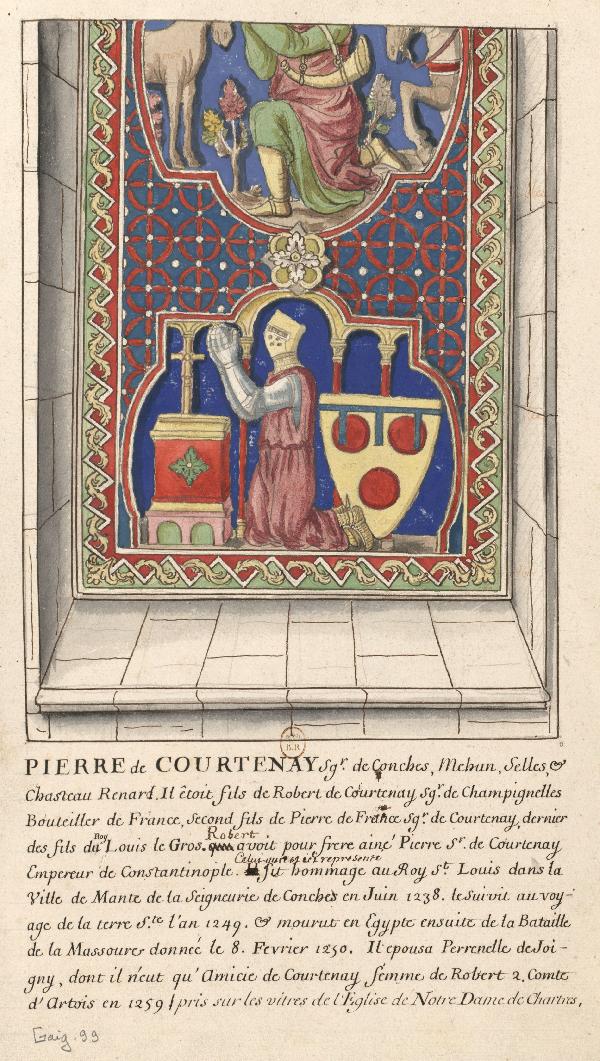 B.R
PIERRE de COURTENAY Sgr. de Conches, Mehun, Selles, &
Chasteau Renard. Il étoit fils de Robert de Courtenay Sgr. de Champignelles
Bouteiller de France, Second fils de Pierre de France Sgr. de Courtenay, dernier
des fils du Roy Louis le Gros. Robert avoit pour frere ainé Pierre Sr. de Courtenay
Empereur de Constantinople. Celui qui est icy represente fit hommage au Roy St. Louis dans la
Ville de Mante de la Seigneurie de Conches en Juin 1238. le suivit au voy-
age de la terre Ste l'an 1249. & mourut en Egypte ensuite de la Bataille
de la Massoure donneé le 8. Fevrier 1250. Il epousa Perrenelle de Joi-
gny, dont il n'eut qu'Amicie de Courtenay femme de Robert 2. Comte
d'Artois en 1259 / pris sur les vitres de l'Eglise de Notre Dame de Chartres,
Gaig. 99